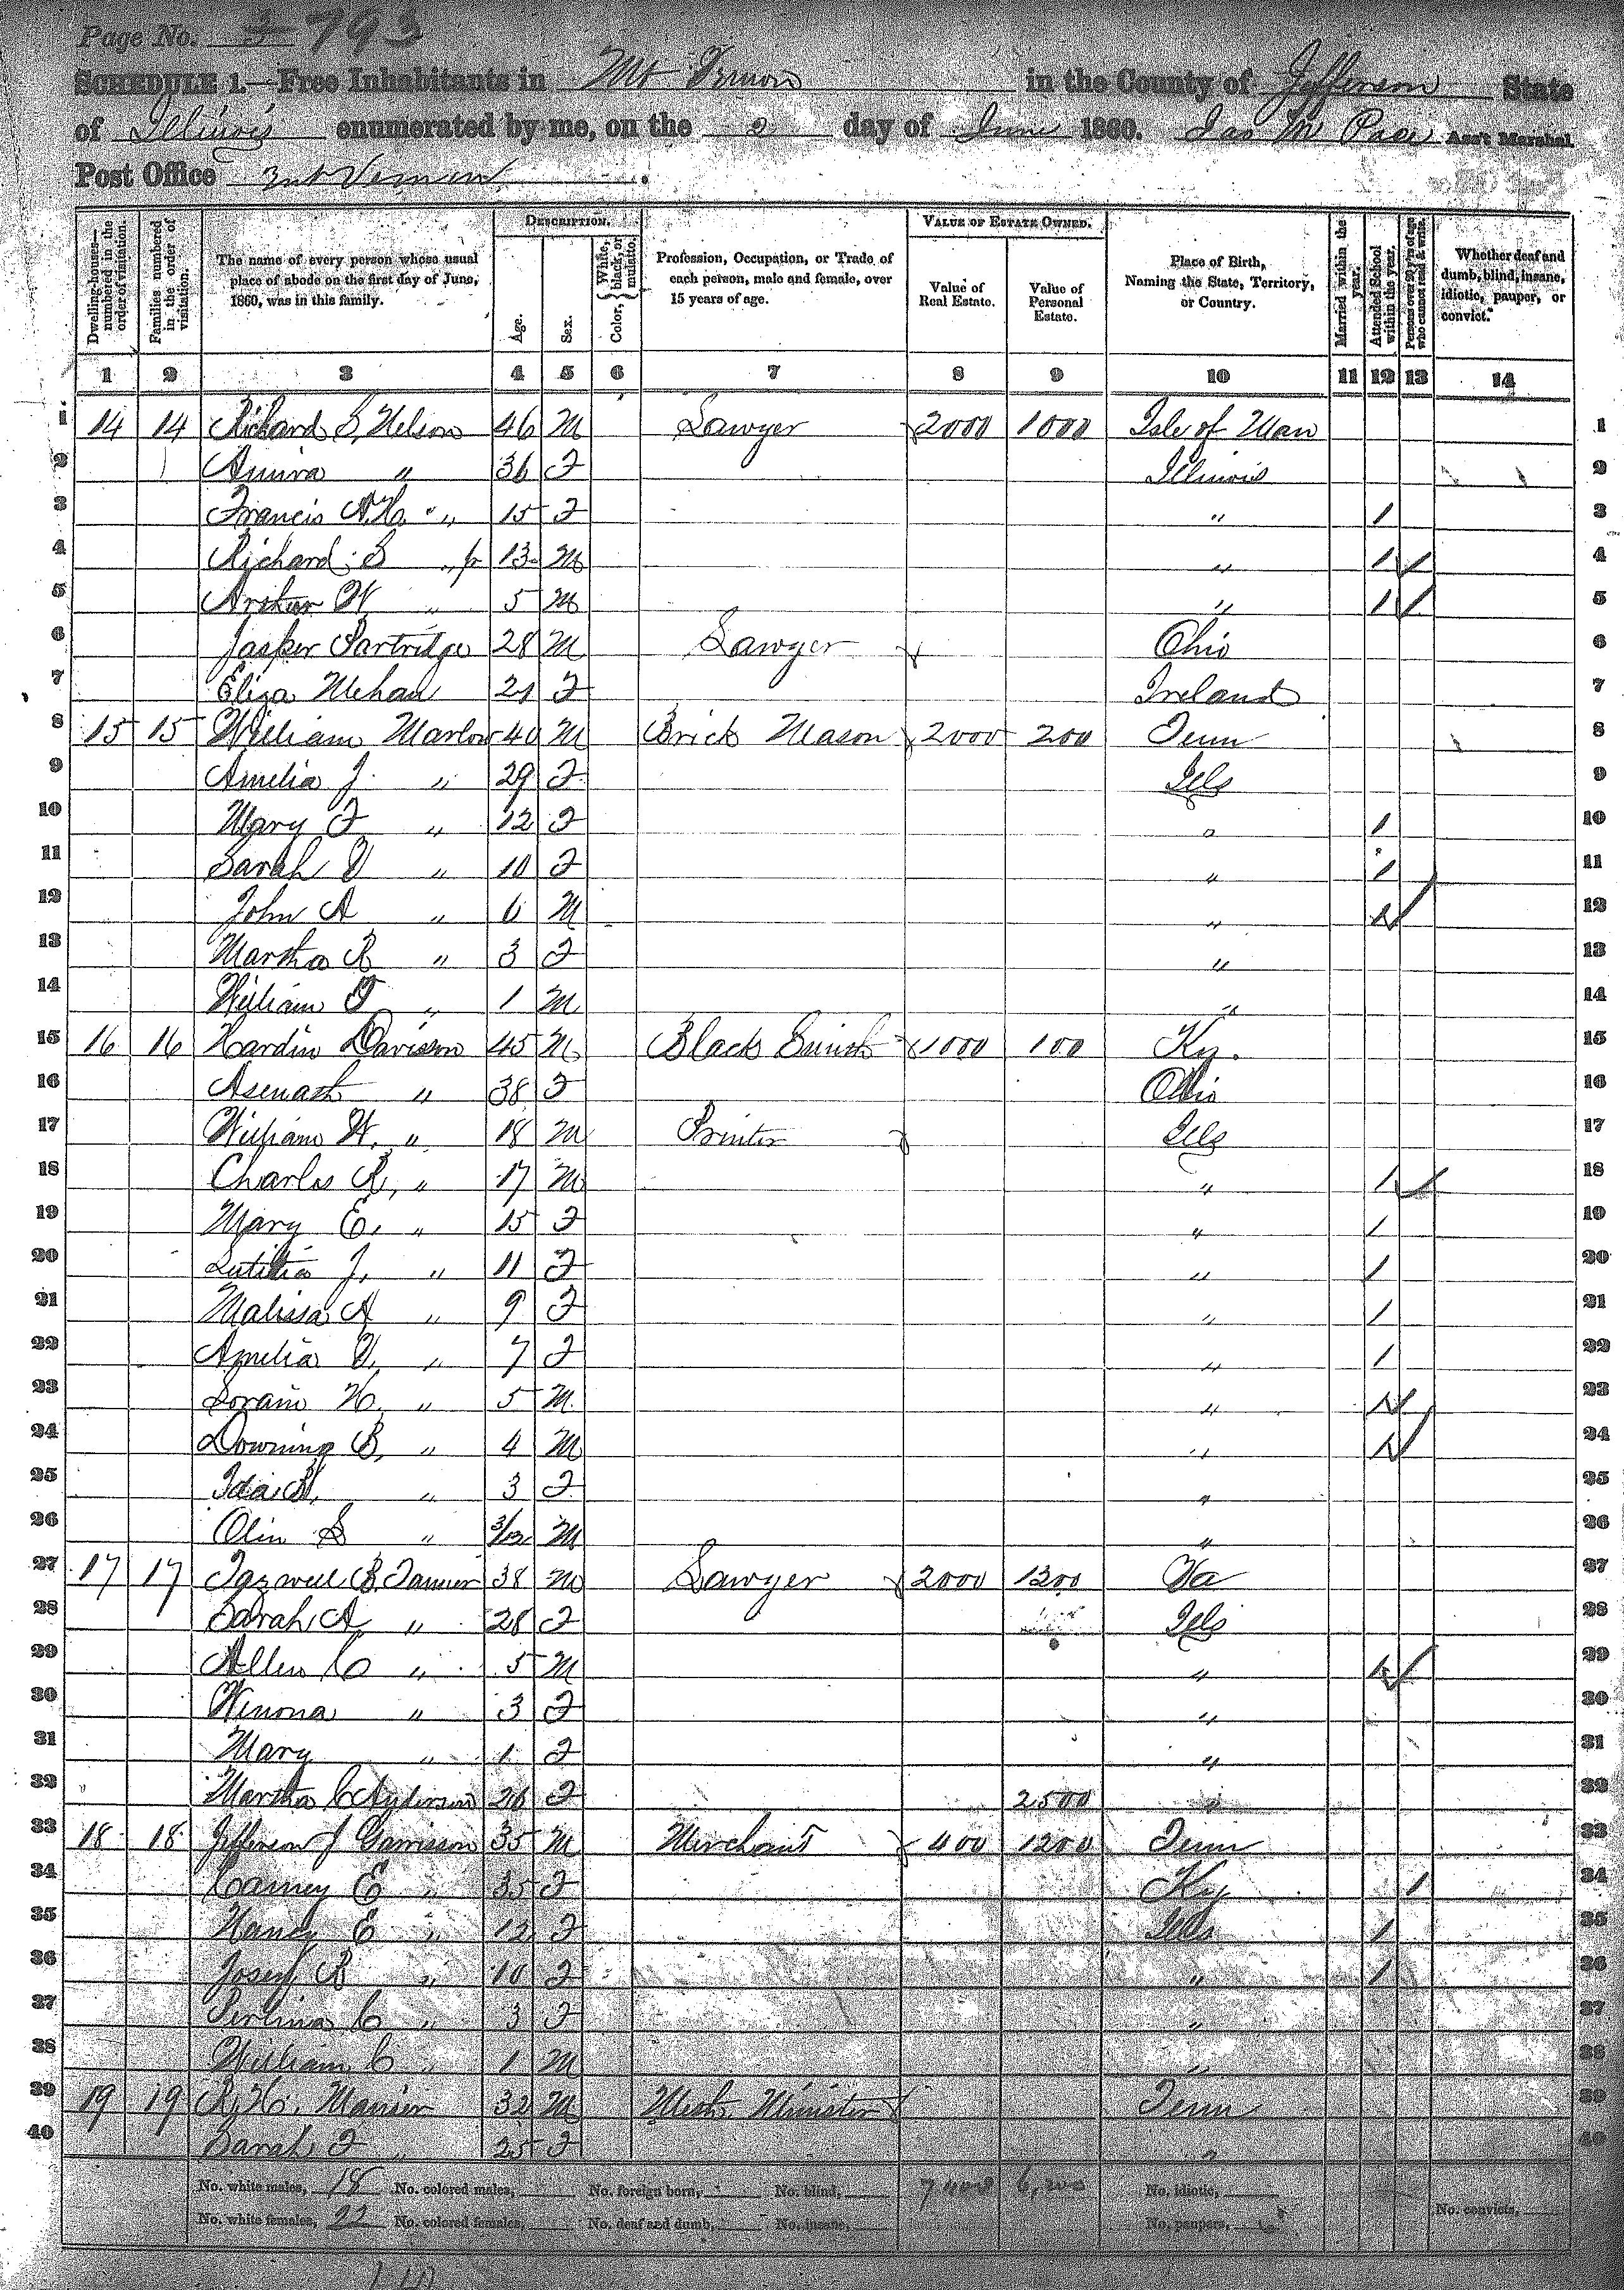 Page No. 3 793
SCHEDULE 1.—Free Inhabitants in Mt Vernon in the County of Jefferson State
of Illinois enumerated by me, on the 2 day of June 1860. Jas M Pace Ass't Marshal
Post Office Mt Vernon.
Dwelling-houses—numbered in the order of visitation. Families numbered in the order of visitation. The name of every person whose usual place of abode on the first day of June, 1860, was in this family. DESCRIPTION. Age. Sex. Color, White, black, or mulatto. Profession, Occupation, or Trade of each person, male and female, over 15 years of age. VALUE OF ESTATE OWNED. Value of Real Estate. Value of Personal Estate. Place of Birth, Naming the State, Territory, or Country. Married within the year. Attended School within the year. Persons over 20 y'rs of age who cannot read & write. Whether deaf and dumb, blind, insane, idiotic, pauper, or convict.
1 2 3 4 5 6 7 8 9 10 11 12 13 14
1 14 14 Richard S, Nelson 46 M Lawyer 2000 1000 Isle of Man 1
2 " 36 F Illinois 2
3 Francis " 15 F " / 3
4 Richard S " Jr 13 M " / 4
5 Arthur W " 5 M " / 5
6 Jasper Partridge 28 M Lawyer Ohio 6
7 Eliza Mehan 21 F Ireland 7
8 15 15 William Marlow 40 M Brick Mason 2000 200 Tenn 8
9 Amelia J. " 29 F Ills 9
10 Mary F " 12 F " / 10
11 Sarah V " 10 F " / 11
12 John A " 6 M " / 12
13 Martha R " 3 F " 13
14 William F " 1 M " 14
15 16 16 Hardin Davisson 45 M Black Smith 1000 100 Ky. 15
16 Asenath " 38 F Ohio 16
17 William W, " 18 M Printer Ills 17
18 Charles R, " 17 M " / 18
19 Mary E, " 15 F " / 19
20 Lutitia J, " 11 F " / 20
21 Malissa A " 9 F " / 21
22 Amelia V, " 7 F " / 22
23 Lorain H, " 5 M " / 23
24 Downing B, " 4 M " / 24
25 Ida B, " 3 F " 25
26 Olin S " 3/12 M " 26
27 17 17 Tazwell B, Tanner 38 M Lawyer 2000 1200 Va 27
28 Sarah A " 28 F Ills 28
29 Allen C " 5 M " / 29
30 Winona " 3 F " 30
31 Mary " 1 F " 31
32 Martha C Anderson 26 F 2500 " 32
33 18 18 Jefferson J Garrisson 35 M Merchant 400 1200 Tenn 33
34 E " 35 F Ky / 34
35 Nancy E " 12 F Ills / 35
36 R " 10 F " / 36
37 Perlina C " 3 F " 37
38 William C " 1 M " 38
39 19 19 R, H, Manier 32 M Meth. Minister Tenn 39
40 Sarah F " 25 F " 40
No. white males, 18 No. colored males, No. foreign born, No. blind, 7400 6,200 No. idiotic,
No. white females, 22 No. colored females, No. deaf and dumb, No. insane, No. paupers, No. convicts,